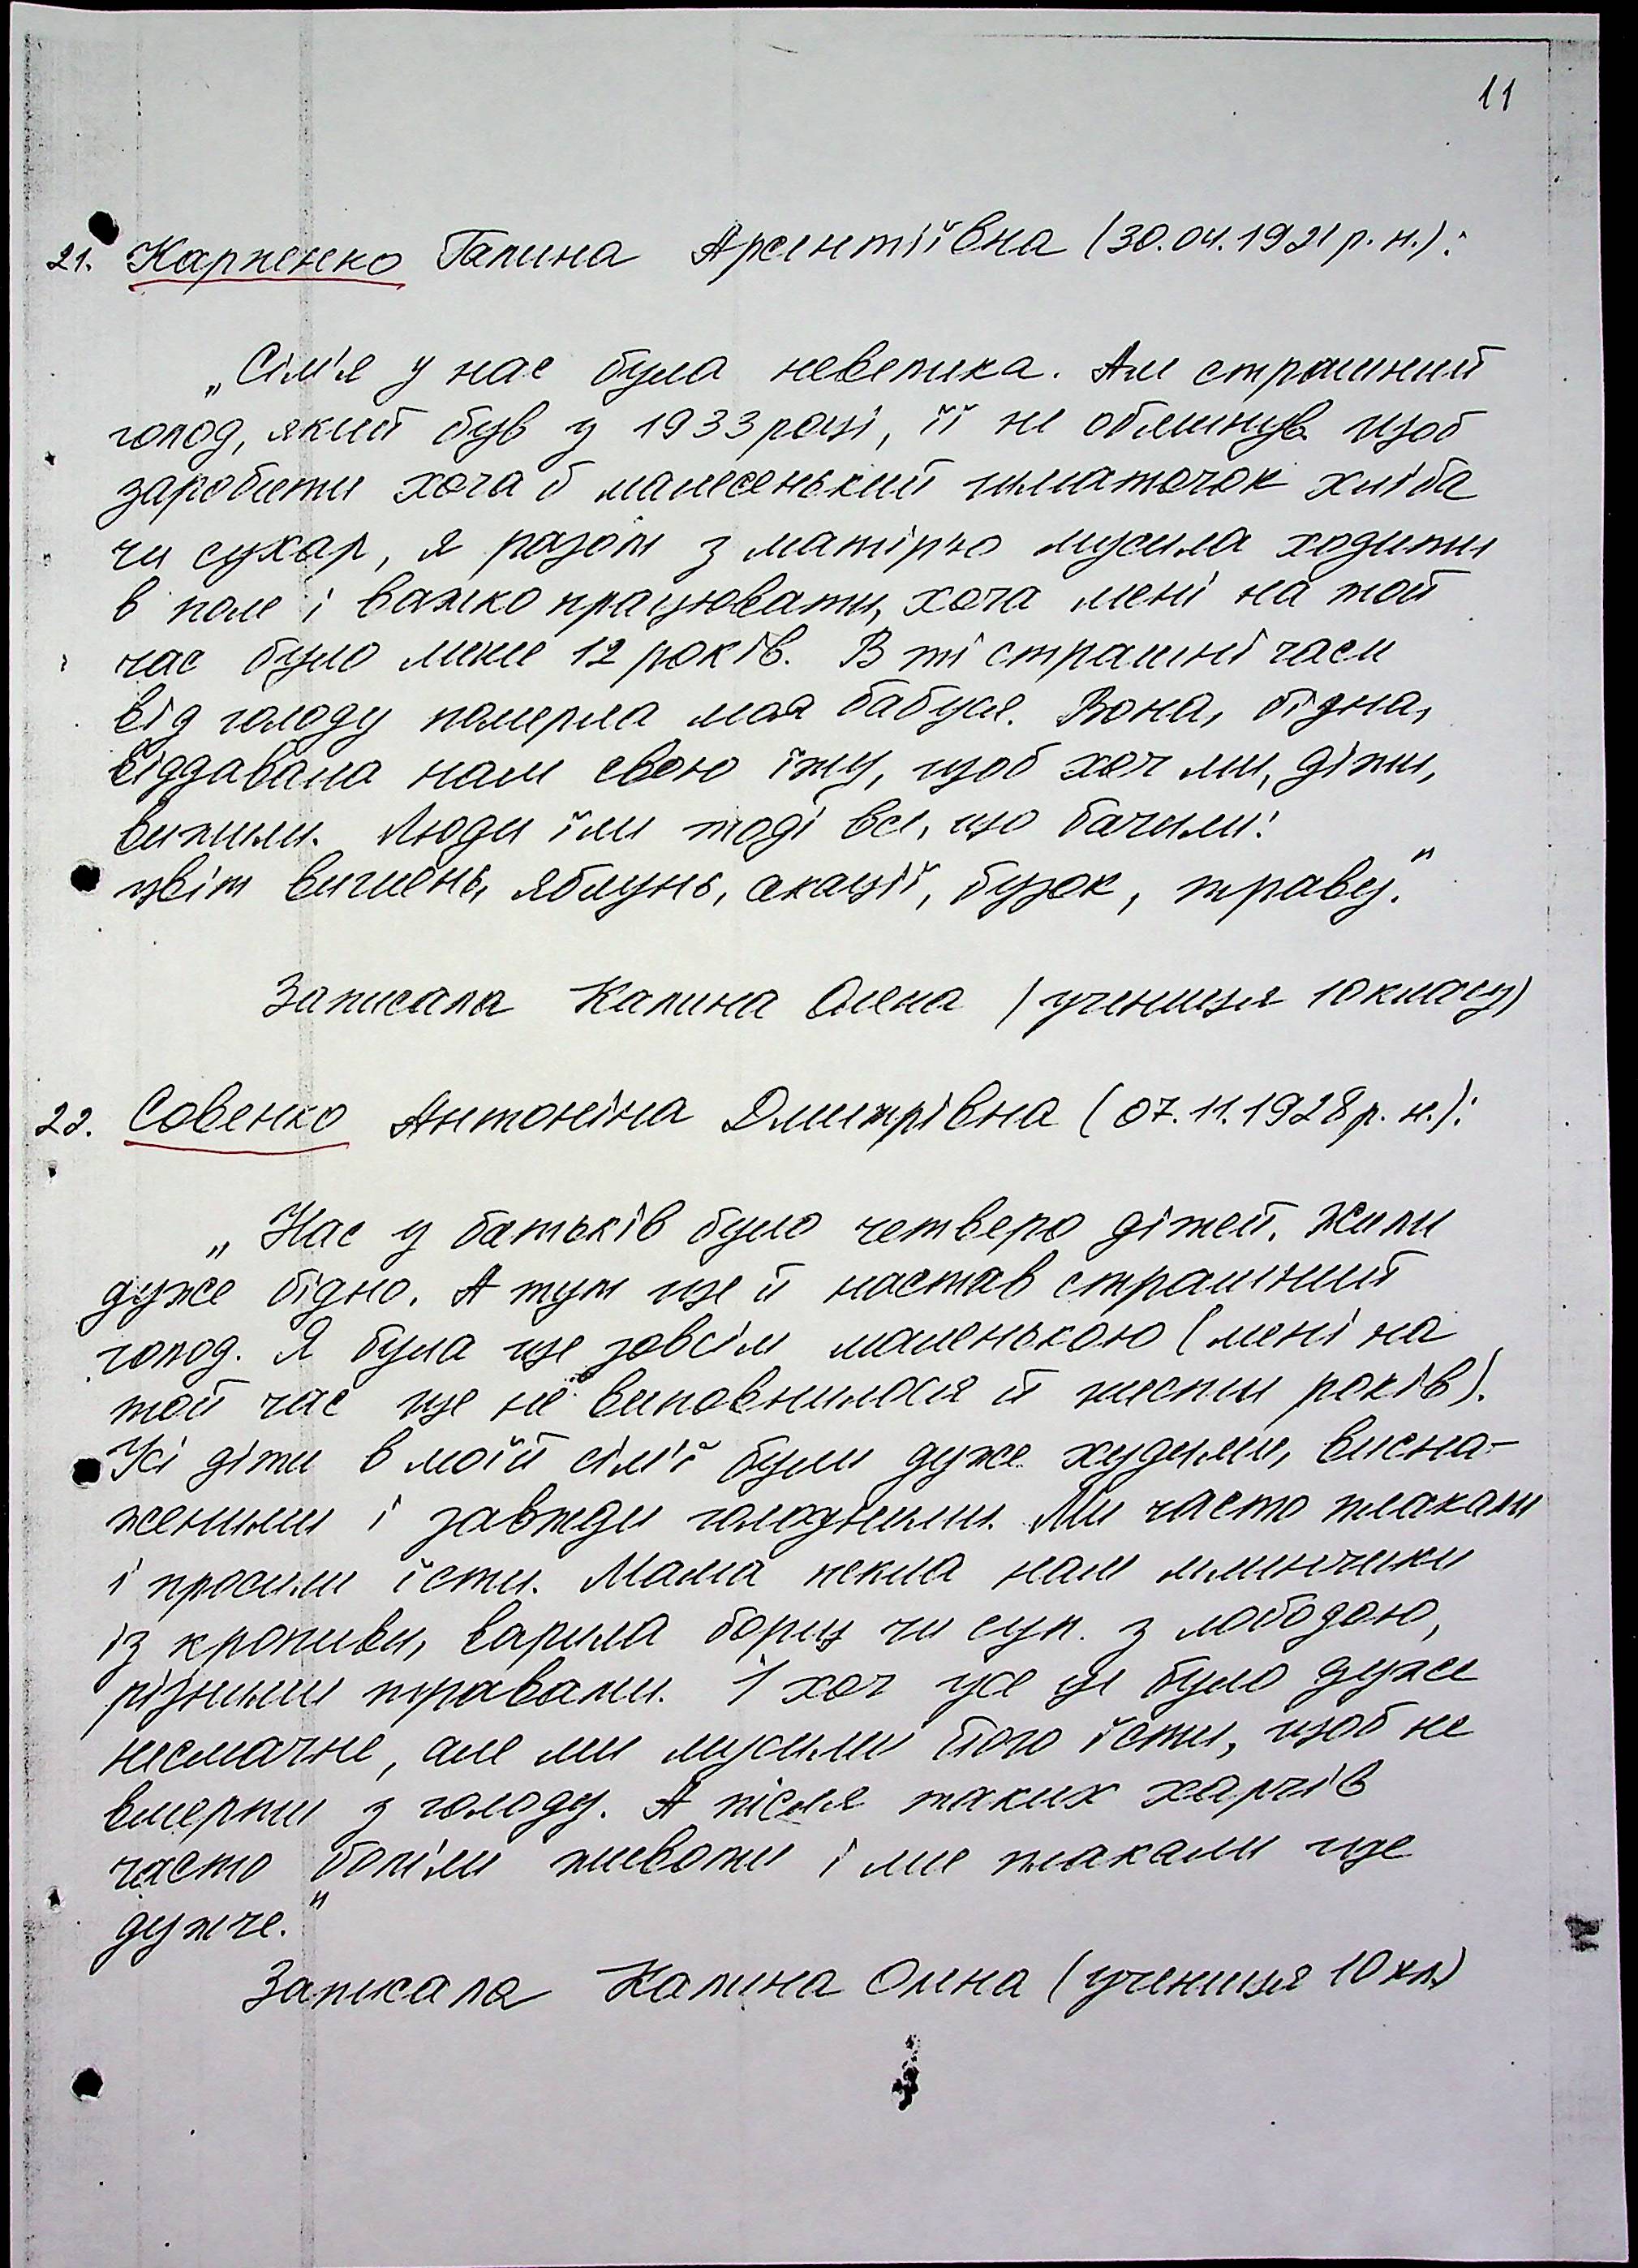 11
21. Карпенко Галина Арсентіївна (30.04.1921 р. н.):
„Сім'я у нас була невелика. Але страшний
голод, який був у 1933 році, її не обминув. Щоб
заробити хоча б малесенький шматочок хліба
чи сухар, я разом з матір'ю мусила ходити
в поле і важко працювати, хоча мені на той
час було лише 12 років. В ті страшні часи
від голоду померла моя бабуся. Вона, бідна,
віддавала нам свою їжу, щоб хоч ми, діти,
вижили. Люди їли тоді все, що бачили:
цвіт вишень, яблунь, акації, бузок, траву."
Записала Калина Олена (учениця 10 класу)
22. Совенко Антоніна Дмитрівна (07.11.1928 р. н.):
„Нас у батьків було четверо дітей. Жили
дуже бідно. А тут ще й настав страшний
голод. Я була ще зовсім маленькою (мені на
той час ще не виповнилося й шести років).
Усі діти в моїй сім'ї були дуже худими, висна-
женими і завжди голодними. Ми часто плакали
і просили їсти. Мама пекла нам млинчики
із кропиви, варила борщ чи суп з лободою,
різними травами. І хоч усе це було дуже
несмачне, але ми мусили його їсти, щоб не
вмерти з голоду. А після таких харчів
часто боліли животи і ми плакали ще
дужче."
Записала Калина Олена (учениця 10 кл.)